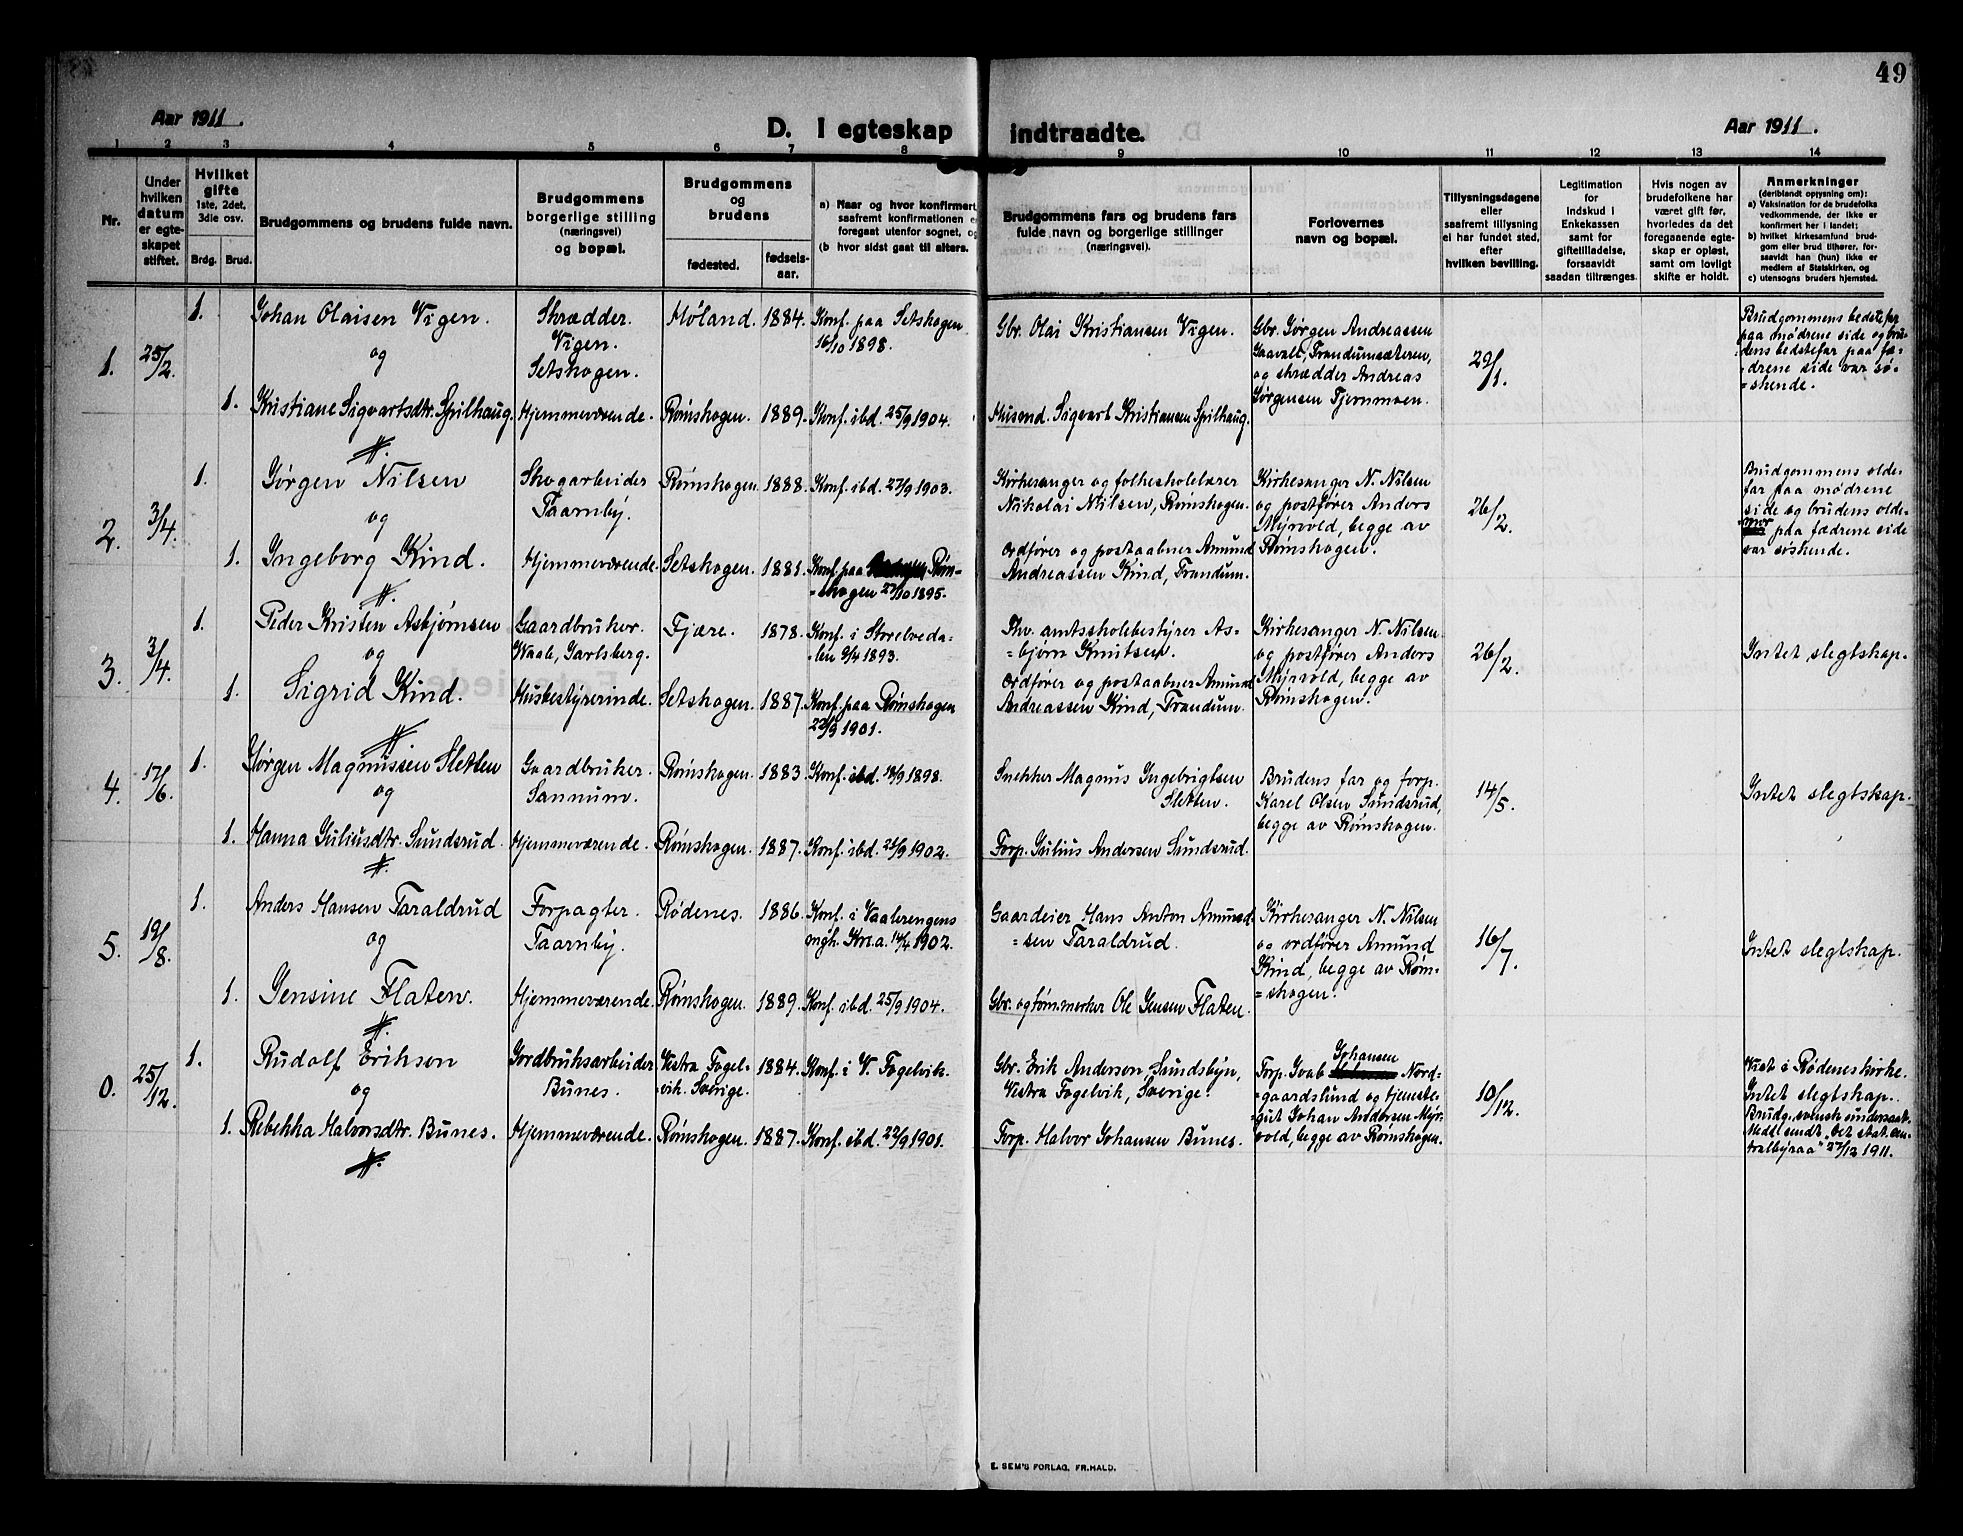 49
Aar 1911.
D. I egteskap indtraadte.
Aar 1911.
1 2 3 4 5 6 7 8 9 10 11 12 13 14
Nr.
Under
hvilken
datum
er egte-
skapet
stiftet.
Hvilket
gifte
1ste, 2det,
3die osv.
Brdg. Brud.
Brudgommens og brudens fulde navn.
Brudgommens
borgerlige stilling
(næringsvei)
og bopæl.
Brudgommens
og
brudens
fødested.
fødsels-
aar.
a) Naar og hvor konfirmert,
saafremt konfirmationen er
foregaat utenfor sognet, og
(b hvor sidst gaat til alters.
Brudgommens fars og brudens fars
fulde navn og borgerlige stillinger
(næringsvei).
Forlovernes
navn og bopæl.
Tillysningsdagene
eller
saafremt tillysning
ei har fundet sted,
efter
hvilken bevilling.
Legitimation
for
indskud i
Enkekassen
samt for
giftetilladelse,
forsaavidt
saadan tiltrænges.
Hvis nogen av
brudefolkene har
været gift før,
hvorledes da det
foregaaende egte-
skap er opløst,
samt om lovligt
skifte er holdt.
Anmerkninger
(deriblandt opjysning om):
a) Vaksination for de brudefolks
vedkommende, der ikke er
konfirmert her i landet;
b) hvilket kirkesamfund brud-
gom eller brud tilhører, for-
saavidt han (hun) ikke er
medlem af Statskirken, og
c) utensogns bruders hjemsted.
1. 25/2. 1. Johan Olaisen Vigen.
og
1. Kristiane Sigvartsdtr. Spilhaug.
Skrædder.
Vigen.
Setskogen.
Hjemmeværende.
Høland. 1884. Konf. paa Setskogen
16/10 1898.
Rømskogen. 1889. Konf. ibd. 25/9 1904.
Gbr. Olai Kristiansen Vigen.
Husmd. Sigvart Kristiansen Spilhaug.
Gbr. Jørgen Andreassen
Gaavalt, Trandumsæteren,
og skrædder Andreas
Jørgensen Tjernmoen.
29/1.
Brudgommens bedstefar
paa mødrene side og bru-
dens bedstefar paa fæ-
-drene side var sø-
-skende.
2. 3/4. 1. Jørgen Nilsen
og
1. Ingeborg Kind.
Skogarbeider
Taarnby.
Hjemmeværende.
Rømskogen. 1888. Konf. ibd. 27/9 1903.
Setskogen. 1881. Konf. paa Røm-
-skogen 27/10 1895.
Kirkesanger og folkeskolelærer
Nikolai Nilsen, Rømskogen.
Ordfører og postaabner Amund
Andreassen Kind, Trandum.
Kirkesanger N. Nilsen
og postfører Anders
Myrvold, begge av
Rømskogen.
26/2.
Brudgommens olde-
far paa mødrene
side og brudens olde-
mor paa fædrene side
var søskende.
3. 3/4. 1. Peder Kristen Asbjørnsen
og
1. Sigrid Kind.
Gaardbruker.
Waale, Jarlsberg.
Husbestyrerinde.
Fjære. 1878. Konf. i Storelveda-
-len 9/4 1893.
Setskogen. 1887. Konf. paa Rømskogen
22/9 1901.
Fhv. amtsskolebestyrer As-
=bjørn Knutsen.
Ordfører og postaabner Amund
Andreassen Kind, Trandum.
Kirkesanger N. Nilsen
og postfører Anders
Myrvold, begge av
Rømskogen.
26/2.
Intet slegtskap.
4. 17/6. 1. Jørgen Magnussen Sletten
og
1. Hanna Juliusdtr. Sundsrud.
Gaardbruker.
Sannum.
Hjemmeværende.
Rømskogen. 1883. Konf. ibd. 18/9 1898.
Rømskogen. 1887. Konf. ibd. 21/9 1902.
Snekker Magnus Ingebrigtsen
Sletten.
Forp. Julius Andersen Sundsrud.
Brudens far og forp.
Karel Olsen Sundsrud,
begge av Rømskogen.
14/5.
Intet slegtskap.
5. 19/8. 1. Anders Hansen Taraldrud
og
1. Jensine Flaten.
Forpagter.
Taarnby.
Hjemmeværende.
Rødenes. 1886. Konf. i Vaalerengens
mgh. Kr.a. 14/4 1902.
Rømskogen. 1889. Konf. ibd. 25/9 1904.
Gaardeier Hans Anton Amund-
=sen Taraldrud.
Gbr. og tømmerker Ole Jensen Flaten.
Kirkesanger N. Nilsen
og ordfører Amund
Kind, begge av Røm-
=skogen.
16/7.
Intet slegtskap.
0. 25/12. 1. Rudolf Erikson
og
1. Rebekka Halvorsdtr. Bunes.
Jordbruksarbeider
Bunes.
Hjemmeværende.
Vestra Fogel-
-vik. Sverige.
1884. Konf. i V. Fogelvik.
Rømskogen. 1887. Konf. ibd. 22/9 1901.
Gbr. Erik Anderson, Sundsbyn,
Vestra Fogelvik, Sverige.
Forp. Halvor Johansen Bunes.
Johansen
Forp. Nord-
=gaardslund og tjeneste-
=gut Johan Andersen Myr-
vold, begge av Rømskogen.
10/12.
Viet i Rødenes kirke.
Intet slegtskap.
Brudg. svensk undersaat.
Medd. sendt "Det stat. cen-
tralbyraa" 27/12 1911.
E. SEM'S FORLAG, FR.HALD.